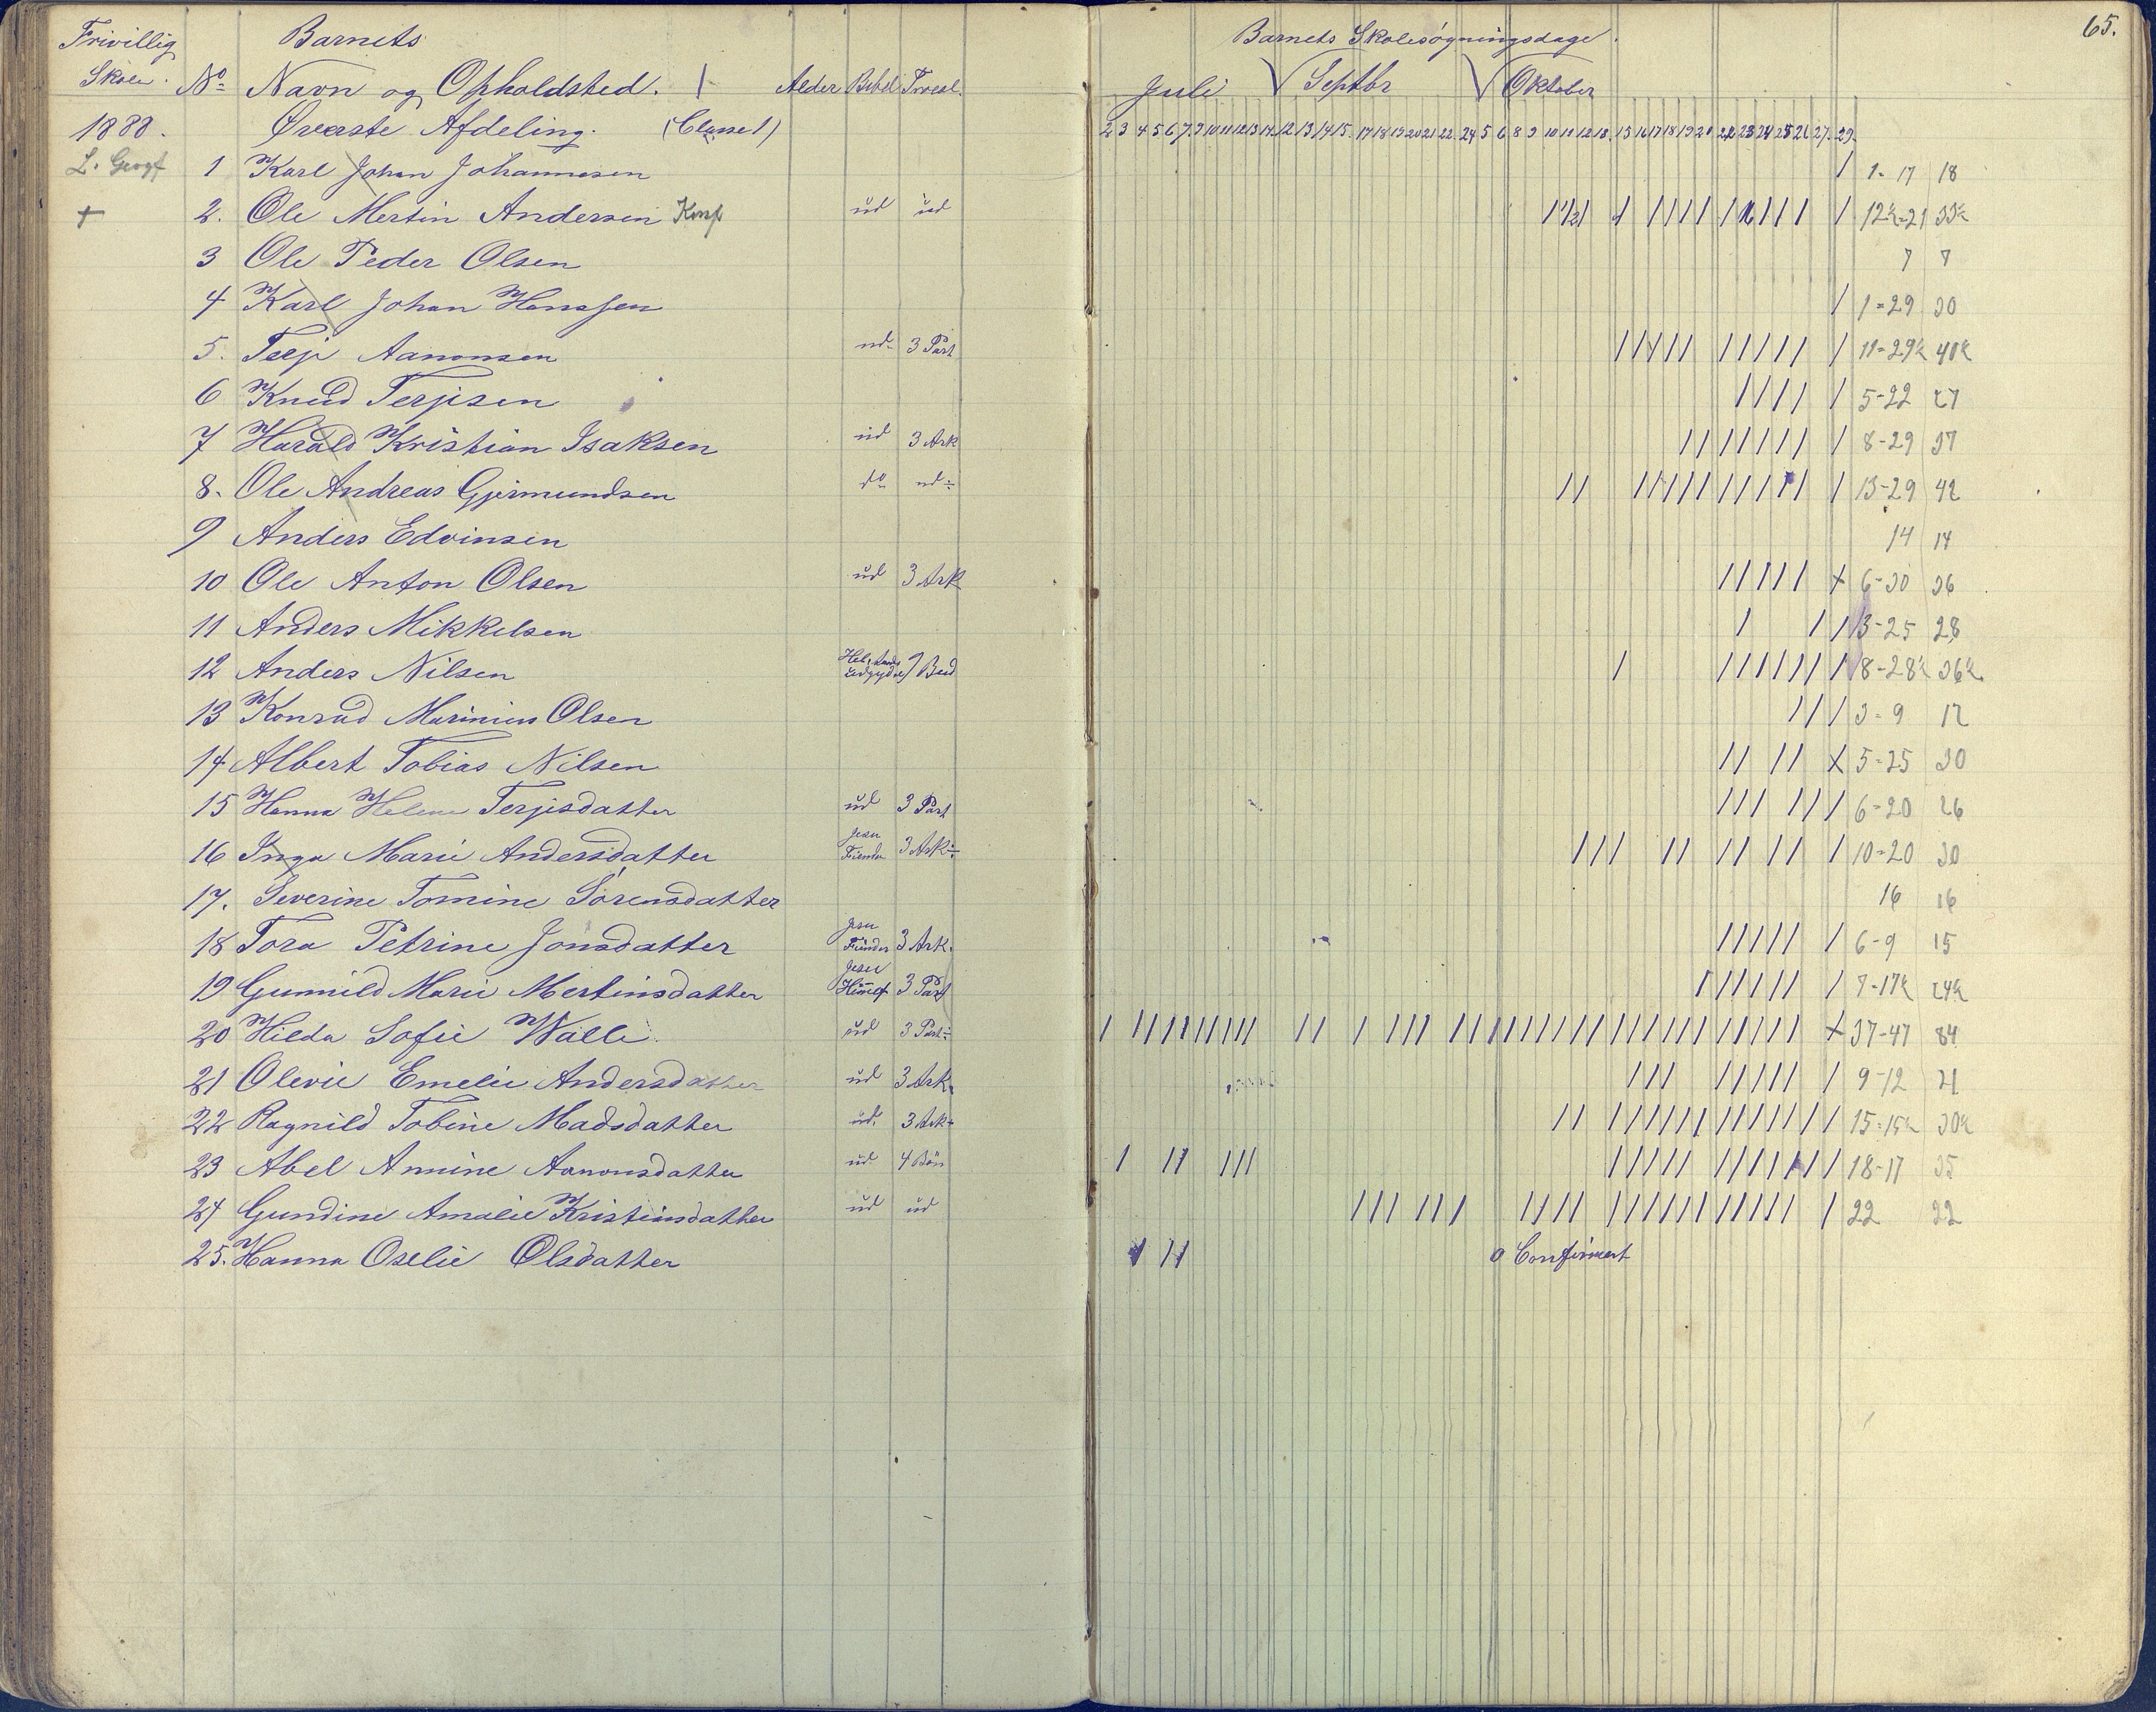 Frivillig Barnets Barnets Skolesøgningsdage. 65.
Skole. No Navn og Opholdsted. Alder Bibel Troesl. Juli Septbr Oktober
1888. Øverste Afdeling. (Classe 1) 2 3 4 5 6 7 9 10 11 12 13 14 12 13 14 15 17 18 19 20 21 22 24 5 6 8 9 10 11 12 13 15 16 17 18 19 20 22 23 24 25 26 27 29
L. Geogf 1 Karl Johan Johannesen / 1-17 18
+ 2. Ole Mertin Andersen Konf ud ud / 1/2 / / / / / / / / / / / / 12½-21 33½
3 Ole Peder Olsen 7 7
4 Karl Johan Hanssen / 1=29 30
5. Terje Aanonsen ud- 3 Part / / / / / / / / / / / 11=29½ 40½
6 Knud Terjesen / / / / / 5-22 27
7 Harald Kristian Isaksen ud 3 Ark / / / / / / / / 8-29 37
8. Ole Andreas Gjermundsen do ud÷ / / / / / / / / / / / / / 13-29 42
9 Anders Edvinsen 14 14
10 Ole Anton Olsen ud 3 Ark / / / / / + 6-30 36
11 Anders Mikkelsen / / / 3-25 28
12 Anders Nilsen Bud / / / / / / / / 8-28½ 36½
13 Konrad Marinius Olsen / / / 3-9 12
14 Albert Tobias Nilsen / / / / + 5=25 30
15 Hanna Helene Terjesdatter ud 3 Part / / / / / / 6-20 26
16 Inga Marie Andersdatter Jesu Fiender 3 Ark÷ / / / / / / / / / / 10=20 30
17. Severine Tomine Sørensdatter 16 16
18 Tora Petrine Jonsdatter Jesu Fiender 3 Ark. / / / / / / 6-9 15
19 Gunnild Marie Mertinsdatter Jesu Himmelf 3 Part / / / / / / / 7-17½ 24½
20 Hilda Sofie Walle ud 3 Part÷ / / / / / / / / / / / / / / / / / / / / / / / / / / / / / / / / / / / / + 37-47 84
21 Olevie Emelie Andersdatter ud 3 Ark. / / / / / / / / / 9-12 21
22 Ragnild Tobine Madsdatter ud. 3 Ark+ / / / / / / / / / / / / / / / 15=15½ 30½
23 Abel Annine Aanonsdatter ud 4 Bøn / / / / / / / / / / / / / / / / / / 18-17 35
24 Gundine Amalie Kristiansdatter ud ud / / / / / / / / / / / / / / / / / / / / / / 22 22
25. Hanna Oselie Olsdatter / / / o Confirmert